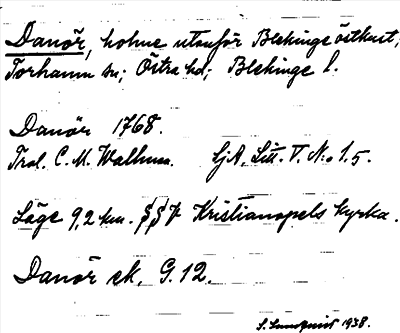 Danör, holme utanför Blekinge östkust,
Torhamn sn; Östra hd; Blekinge l.
Danör 1768.
C. M. Walhum. SjA, Litt. V. No 1.5.
Läge 9,2 km. Kristianopels kyrka.
Danör ek. G. 12.
S. Lundquist 1938.